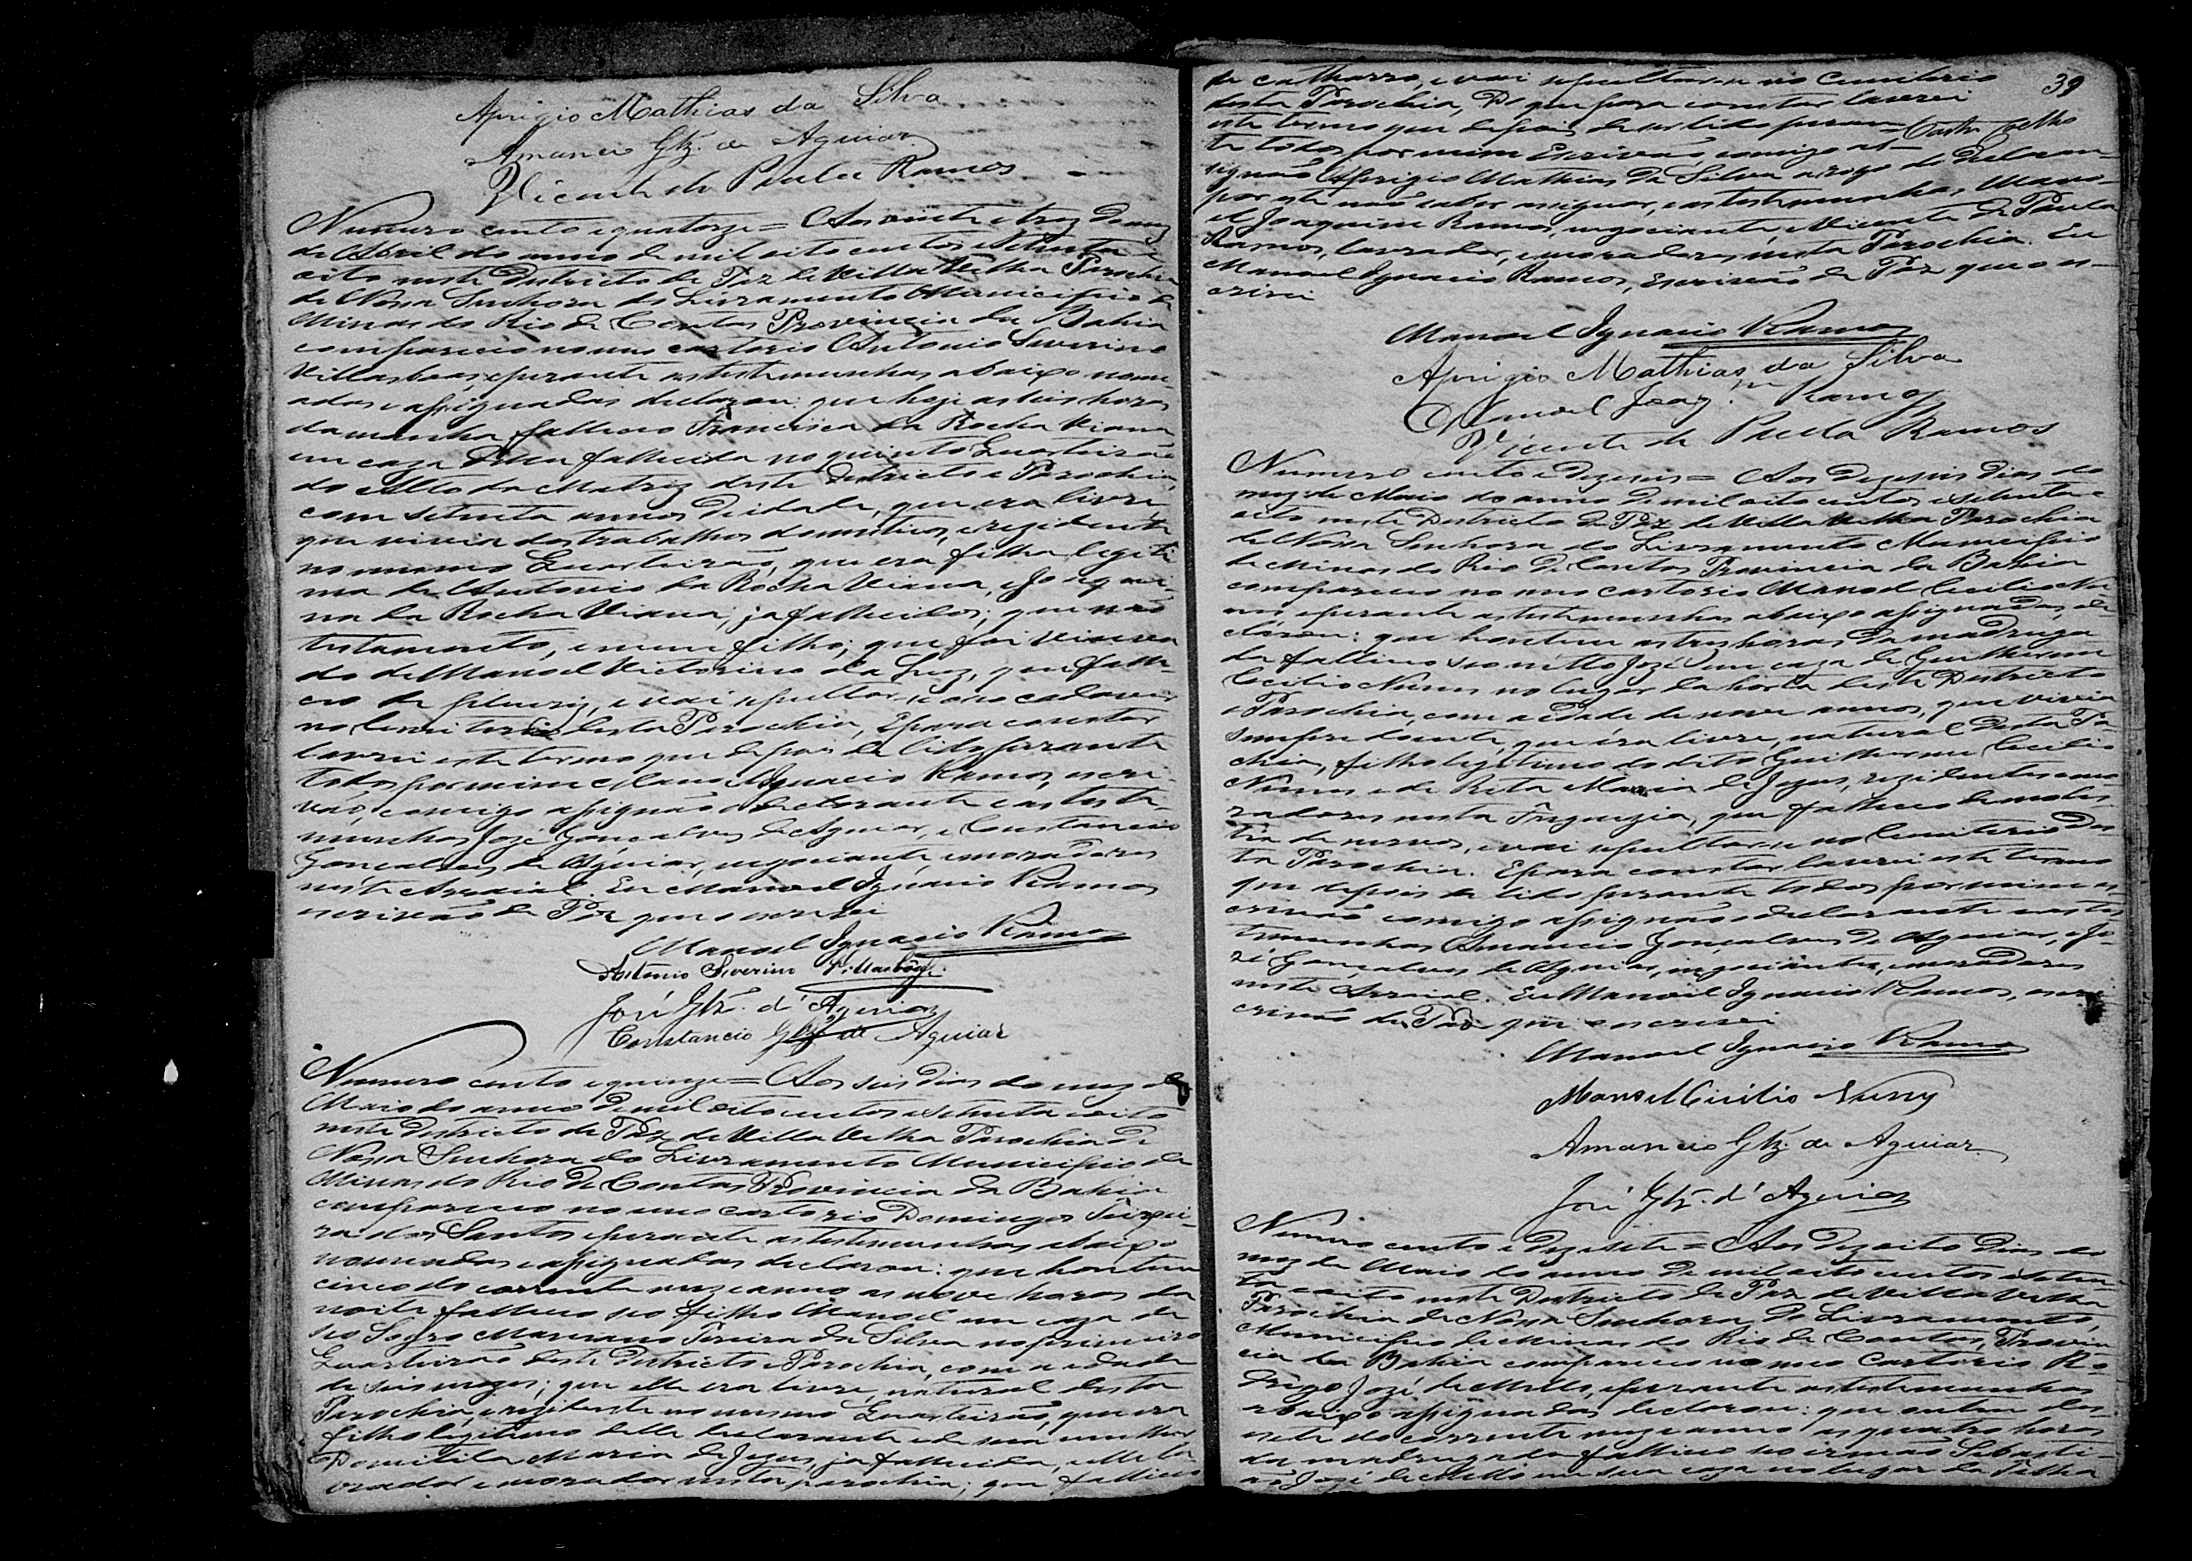 Aprigio Mathias da Silva
Amancio Glz. de Aguiar
Vicente de Paula Ramos
Numero cento e quatorze = Aos vinte e trez do mez
de Abril do anno de mil oito centos e setenta e
oito neste Districto de Paz de Villa Velha Parochia
de Nossa Senhora do Livramento Municipio de
Minas do Rio de Contas Provincia da Bahia
compareceo no meo cartorio Antonio Severino
Villasboas, e perante as testemunhas abaixo nome
adas e assignadas declarou: que hoje as seis horas
da manha falleceo Francisca da Rocha Viana
em caza della fallecida no quinto Quarteirão
do Alto da Matriz deste Districto e Parochia,
com setenta annos de idade, que era livre,
que vivia dos trabalhos domesticos, e rezidente
no mesmo Quarteirão, que era filha legiti
ma de Antonio da Rocha Viana, e Joaqui-
na da Rocha Viana, ja fallecidos; que não
testamento, e nem filho; que foi viuva
do de Manoel Victorino da Luz, que falle-
ceo de pleuriz, e vai sepultar-se o seo cadaver
no Cemiterio desta Parochia, E para constar
lavrei este termo que depois de lido perante
todos por mim Manoel Ignacio Ramos, escri-
vão, comigo assignão o declarante e as teste-
munhas José Gonçalves de Aguiar, e Constancio
Gonçalves de Aguiar, negociante, e moradores
neste Arraial. Eu Manoel Ignacio Ramos
escrivão de Paz que o escrevi
Manoel Ignacio Ramos
Antonio Severino Villasbôas.
José Glz. d'Aguiar
Constancio Glz. de Aguiar
Numero cento e quinze = Aos seis dias do mez de
Maio do anno de mil oito centos e setenta e oito
neste Districto de Paz de Villa Velha Parochia de
Nossa Senhora do Livramento Municipio de
Minas do Rio de Contas Provincia da Bahia
compareceo no meo cartorio Domingos Siquei-
ra dos Santos e perante as testemunhas abaixo
nomeadas e assignadas declarou: que hontem
cinco do corrente mez e anno as nove horas da
noite falleceo seo filho Manoel em caza de
seo Sogro Marciano Pereira da Silva no primeiro
Quarteirão deste Districto e Parochia, com a idade
de seis mezes; que elle era livre, natural desta
Parochia, e rezidente no mesmo Quarteirão, que era
filho legitimo delle declarante e de sua mulher
Domitila Maria de Jezus, ja fallecida, elle la
vrador e morador nesta parochia; que falleceo
39
de catharro, e vai sepultar-se no Cemiterio
desta Parochia, Do que para constar lavrei
este termo que depois de ser lido peran-
te todos por mim Escrivão, comigo as-
signão Aprigio Mathias da Silva a rogo do declaran-
por este não saber assignar, e as testemunhas, Mano-
el Joaquim Ramos, negociante e Vicente de Paula
Ramos, lavrador, e moradores nesta Parochia. Eu
Manoel Ignacio Ramos, Escrivão de Paz que o es-
crevi
Manoel Ignacio Ramos
Aprigio Mathias da Silva
Manoel Joaqm. Ramos
Vicente de Paula Ramos
Numero cento e dezeseis = Aos dezeseis dias do
mez de Maio do anno de mil oito centos e setenta e
oito neste Districto de Paz de Villa Velha Parochia
de Nossa Senhora do Livramento Municipio
de Minas do Rio de Contas Provincia da Bahia
compareceo no meo cartorio Manoel Cecilio Nu-
nes e perante as testemunhas abaixo assignadas, de
clarou: que hontem as tres horas da madruga
da falleceo seo netto José em caza de Guilherme
Cecilio Nunes no lugar da horta deste Districto
e Parochia, com a idade de nove annos, que vivia
sempre doente, que éra livre, natural desta Pa-
chia, filho legitimo do dito Guilherme Cecilio
Nunes e de Rita Maria de Jezus, rezidentes e mo
radores nesta Freguezia, que falleceo de moles
tia de nervos, e vai sepultar-se no Cemiterio des
ta Parochia. E para constar lavrei este termo
que depois de lido perante todos por mim es
crivão comigo assignão o declarante e as tes
temunhas Amancio Gonçalves de Aguiar, e Jo-
zé Gonçalves de Aguiar, negociantes, e moradores
neste Arraial. Eu Manoel Ignacio Ramos, es
crivão de Paz que o escrevi
Manoel Ignacio Ramos
Manoel Cicilio Nuny
Amancio Glz. de Aguiar
José Glz. d'Aguiar
Numero cento e dezesete = Aos dezoito dias do
mez de Maio do anno de mil oito centos e seten-
ta e oito neste Districto de Paz de Villa Velha
Parochia de Nossa Senhora do Livramento,
Municipio de Minas do Rio de Contas, Provin
cia da Bahia compareceo no meo Cartorio Ro-
drigo José de Mello, e perante as testemunhas
abaixo assignadas declarou: que ontem des-
esete do corrente mez e anno as quatro horas
da madrugada falleceo seo irmão Sebasti-
ão José de Mello em sua caza no lugar da Telha